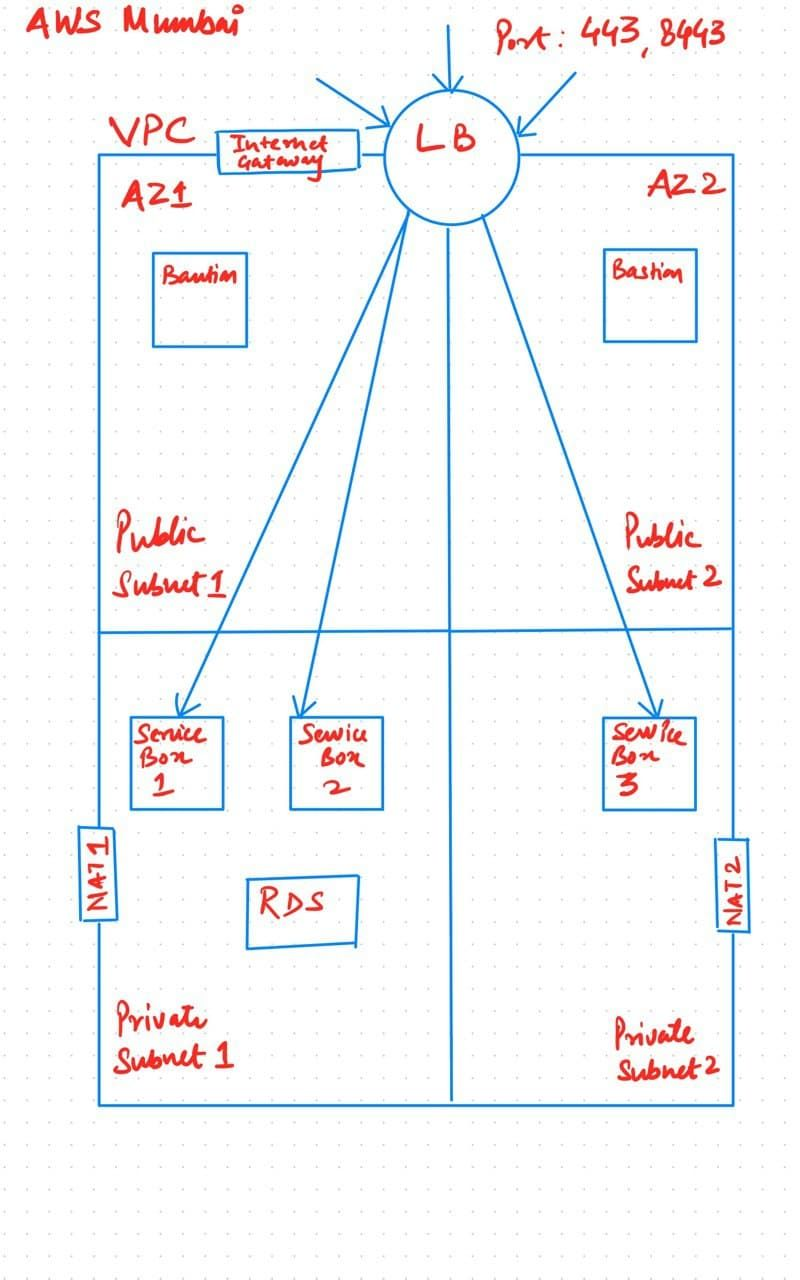 AWS Mumbai
Port: 443, 8443
VPC
Internet
Gataway
LB
AZ1
AZ2
Bastion
Bastion
Public
Subnet 1
Public
Subnet 2
Service
Box
1
Service
Box
2
Service
Box
3
NAT 1
NAT 2
RDS
Private
Subnet 1
Private
Subnet 2